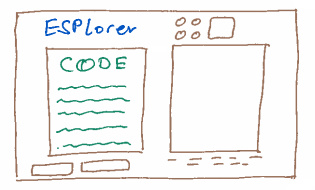 ESPlorer
CODE